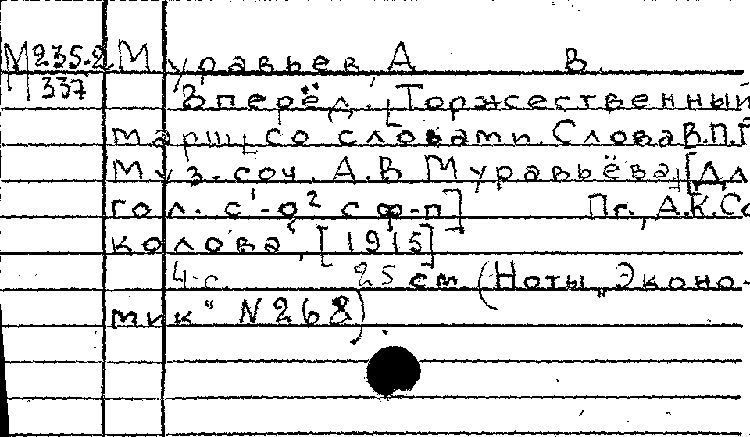 М 235-2 Муравьев, А В.
337 Вперёд. Торжественный
марш со словами. Слова В.П.Г
Муз. соч. А.В Муравьёва [Дл
гол. с¹-о² с ф-п] Пг., А.К.Со
колова, [1915]
4 с. 25 см. (Ноты „Эконо-
мик“ N 268).